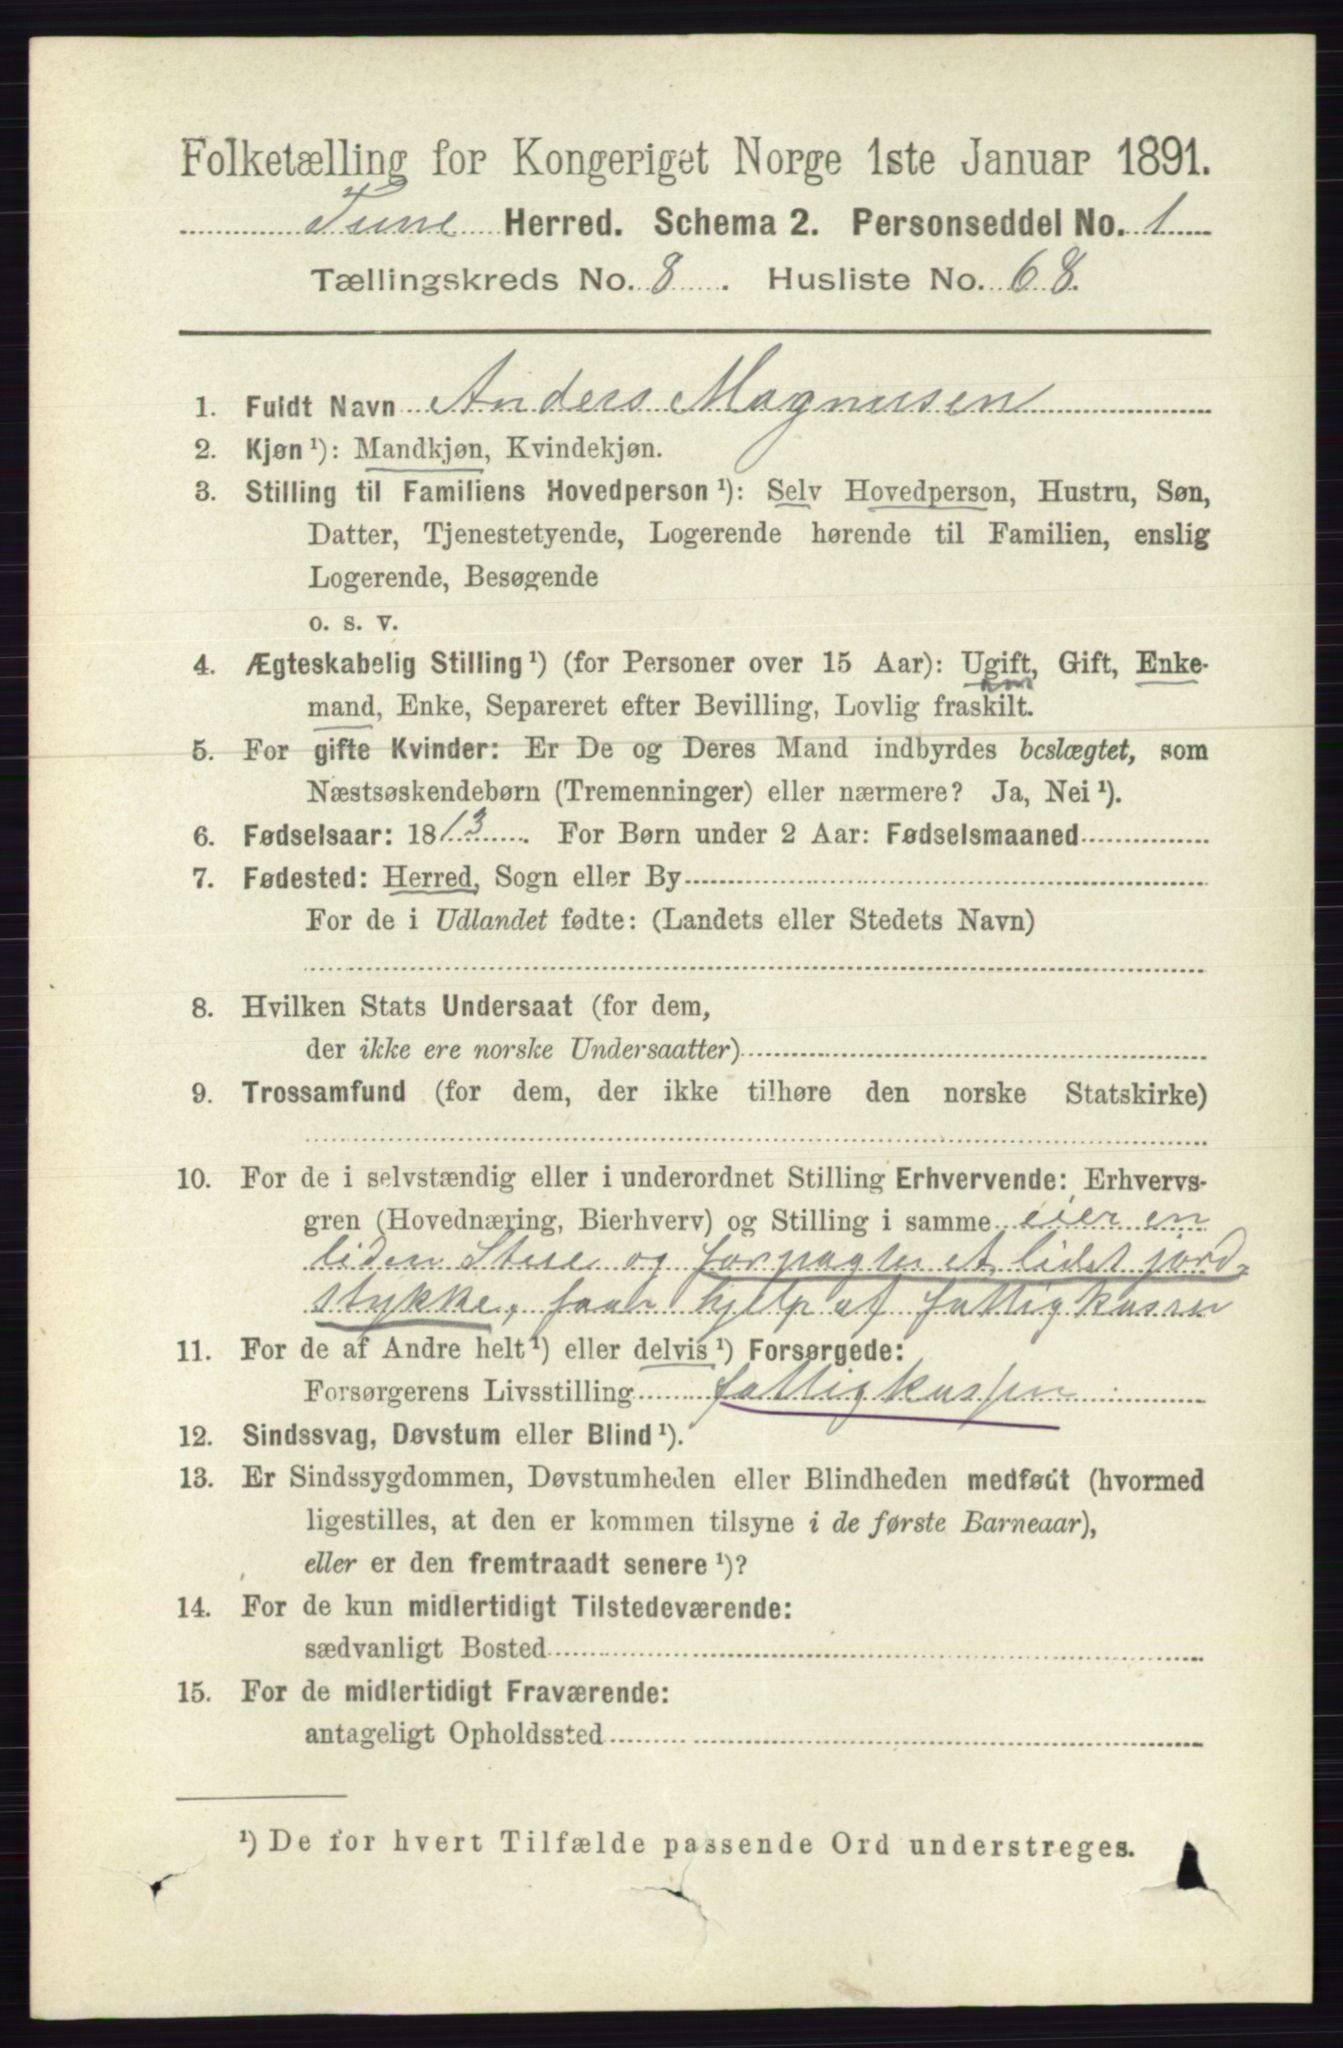 Folketælling for Kongeriget Norge 1ste Januar 1891.
Tune Herred. Schema 2. Personseddel No. 1
Tællingskreds No. 8. Husliste No. 68.
1. Fuldt Navn Anders Magnusen
2. Kjøn¹): Mandkjøn, Kvindekjøn.
3. Stilling til Familiens Hovedperson¹): Selv Hovedperson, Hustru, Søn,
Datter, Tjenestetyende, Logerende hørende til Familien, enslig
Logerende, Besøgende
o. s. v.
4. Ægteskabelig Stilling¹) (for Personer over 15 Aar): Ugift, Gift, Enke-
mand, Enke, Separeret efter Bevilling, Lovlig fraskilt.
5. For gifte Kvinder: Er De og Deres Mand indbyrdes beslægtet, som
Næstsøskendebørn (Tremenninger) eller nærmere? Ja, Nei¹).
6. Fødselsaar: 1813. For Børn under 2 Aar: Fødselsmaaned
7. Fødested: Herred, Sogn eller By
For de i Udlandet fødte: (Landets eller Stedets Navn)
8. Hvilken Stats Undersaat (for dem,
der ikke ere norske Undersaatter)
9. Trossamfund (for dem, der ikke tilhøre den norske Statskirke)
10. For de i selvstændig eller i underordnet Stilling Erhvervende: Erhvervs-
gren (Hovednæring, Bierhverv) og Stilling i samme eier en
liden Stue og forpagter et lidet jord-
stykke, faar hjelp af fattigkassen
11. For de af Andre helt¹) eller delvis¹) Forsørgede:
Forsørgerens Livsstilling fattigkassen
12. Sindssvag, Døvstum eller Blind¹).
13. Er Sindssygdommen, Døvstumheden eller Blindheden medfødt (hvormed
ligestilles, at den er kommen tilsyne i de første Barneaar),
eller er den fremtraadt senere¹)?
14. For de kun midlertidigt Tilstedeværende:
sædvanligt Bosted
15. For de midlertidigt Fraværende:
antageligt Opholdssted
¹) De for hvert Tilfælde passende Ord understreges.